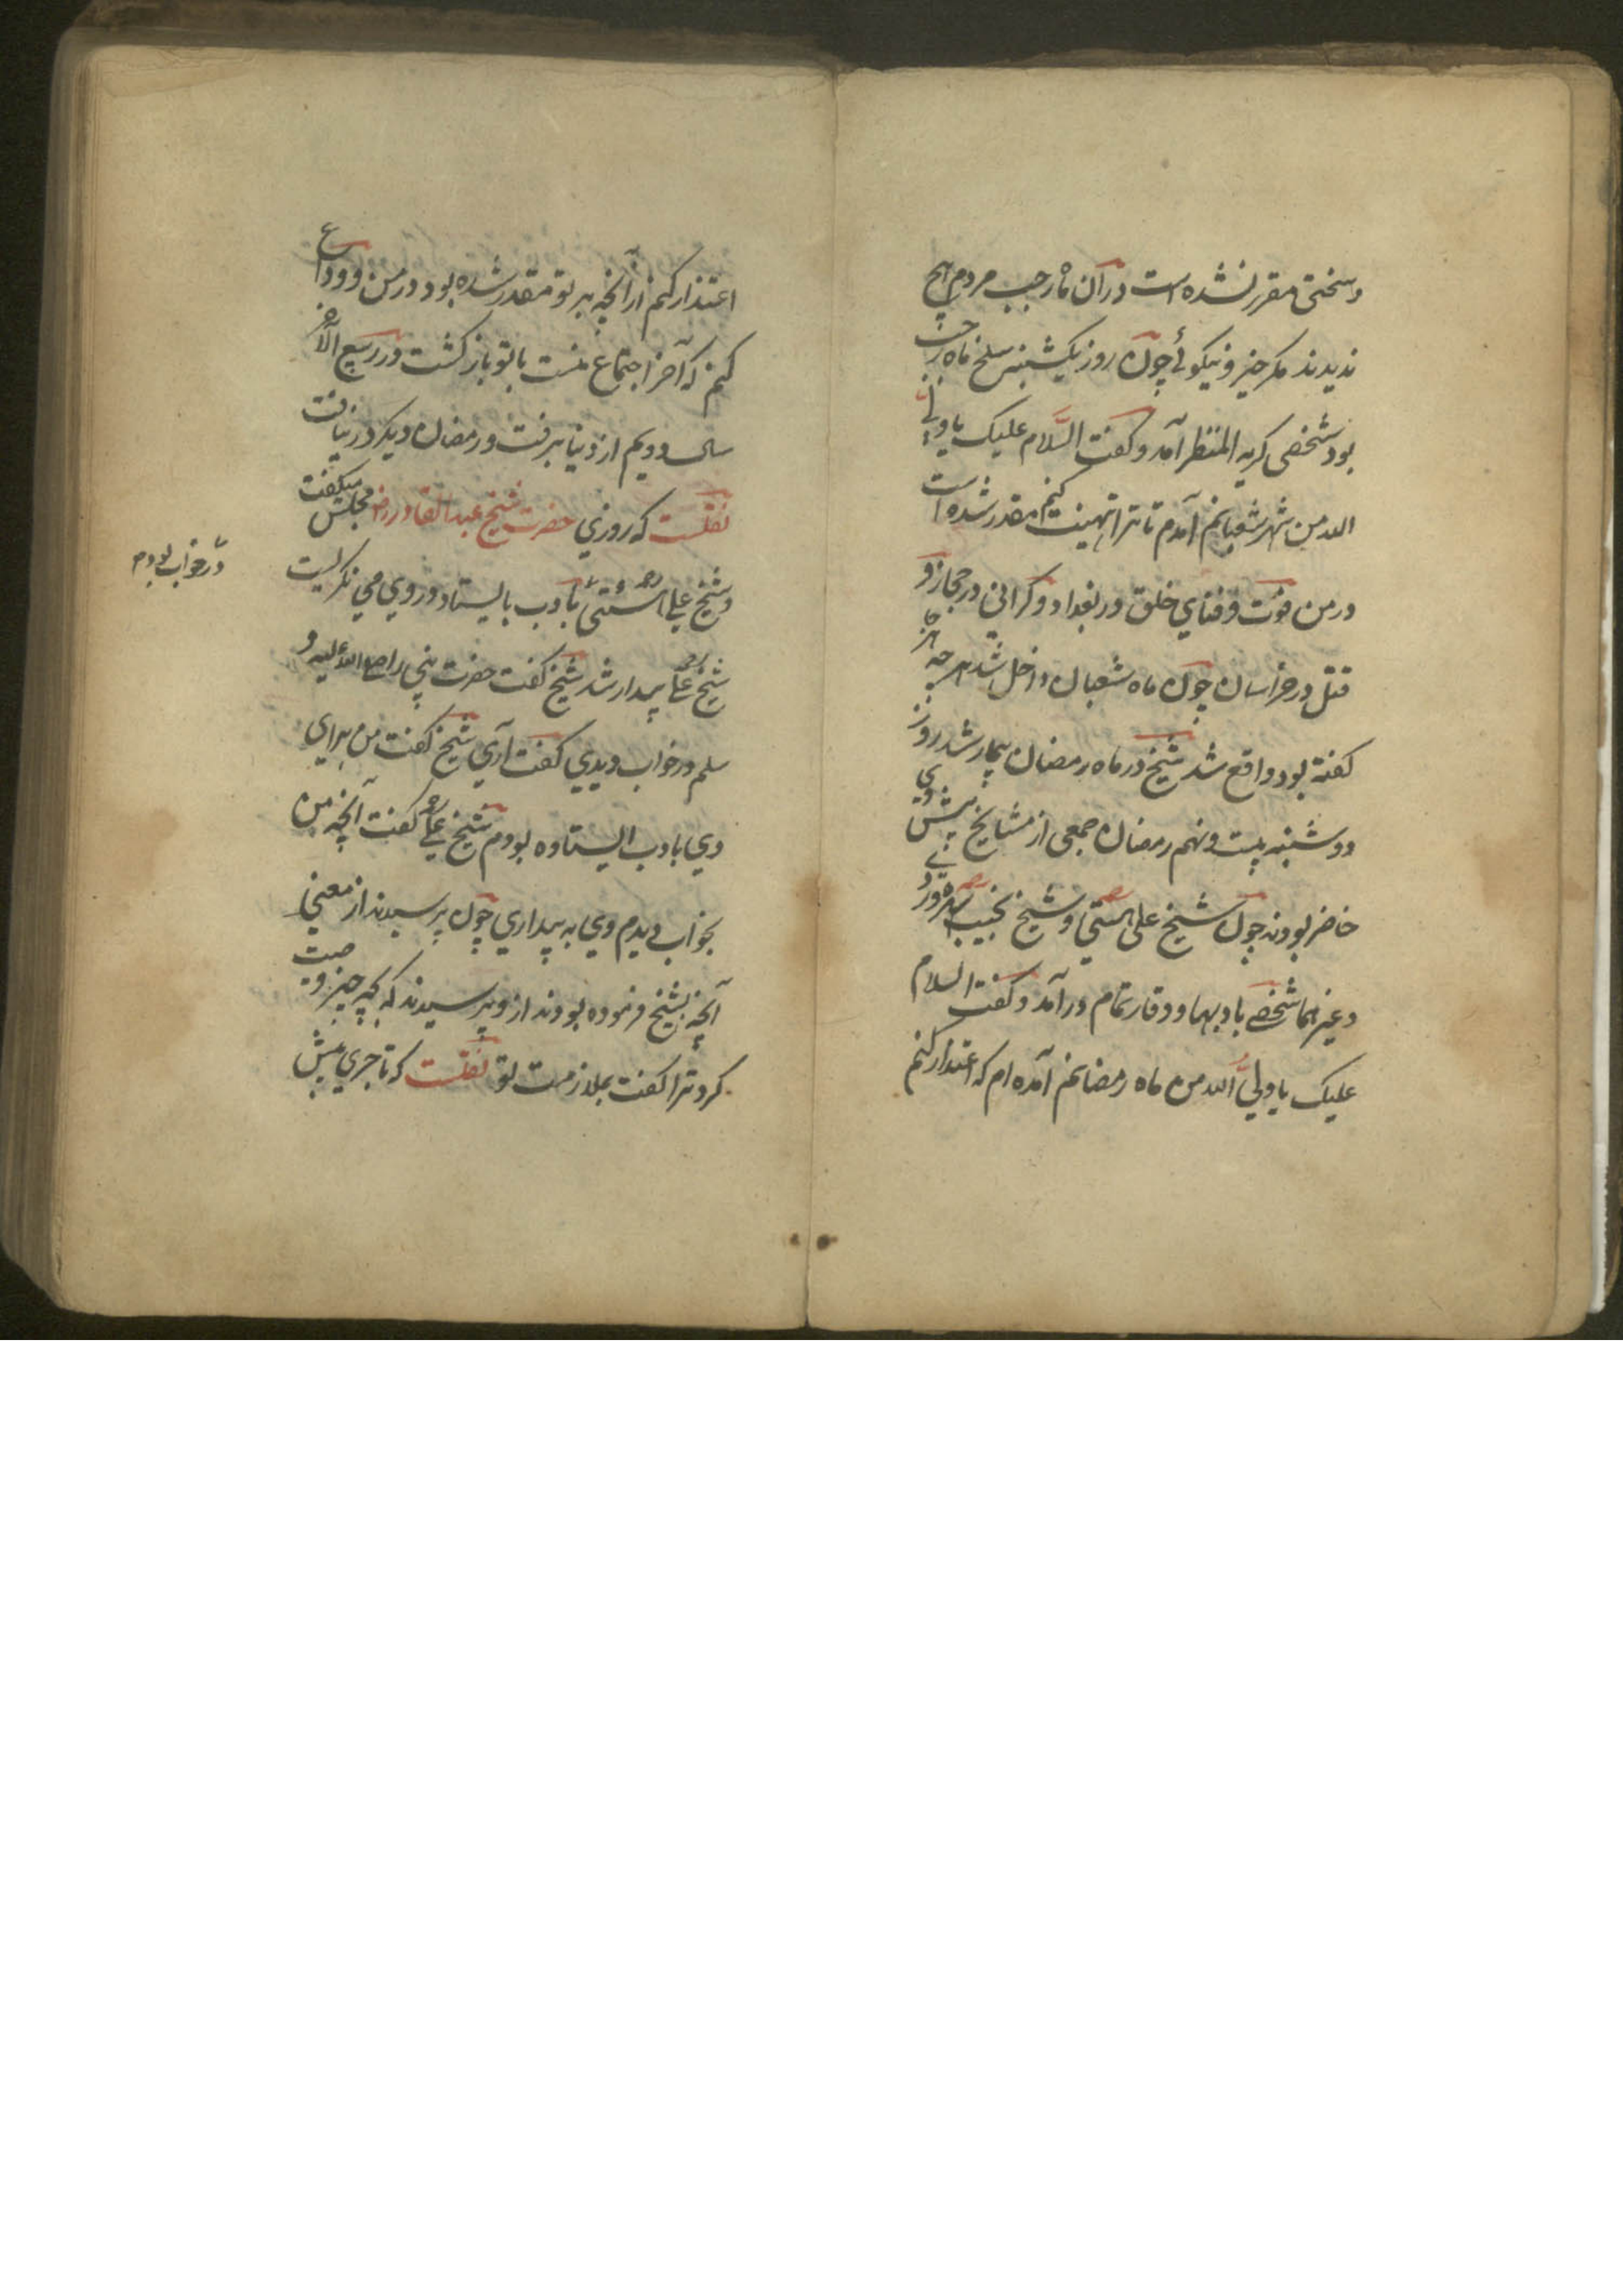 و سختی مقرر نشده است در آن ماه رجب مردم هیچ
ندیدند مکر خیر و نیکوئے چون روز یکشنبه سلخ ماه رجب
بود شخصی کریه المنظر آمد و کفت السلام علیک یا ولی
الله من شهر شعبانم آمدم تا ترا تهنیت کنم مقدر شده است
در من موت و فنای خلق در بغداد و کرانی در حجاز و
قتل در خراسان چون ماه شعبان داخل شد هر چه هر جا
کفته بود واقع شد شیخ در ماه رمضان بیمار شد روز
دوشنبه بیست و نهم رمضان جمعی از مشایخ پیش وی
حاضر بودند چون شیخ علی هیتی و شیخ نجیب سهروردی
و غیرهما شخصے با و بها و وقار تمام در آمد و کفت السلام
علیک یا ولی الله من ماه رمضانم آمده ام که اعتذار کنم
اعتذار کنم از آنچه بر تو مقدر شده بود در من و وداع
کنم که آخر اجتماع منست با تو باز کشت در ربیع الآخر
سال دویم از دنیا برفت و رمضان دیکر در نیافت
نقلست که روزی حضرت شیخ عبدالقادر رض مجلس میکفت
و شیخ علی هیتی بادب بایستاد و در وی می نکریست
در خواب بودم
شیخ علی بیدار شد شیخ کفت حضرت نبی را صلی الله علیه و
سلم در خواب دیدی کفت آری شیخ کفت من برای
وی بادب ایستاده بودم شیخ علی کفت آنچه من
بخواب دیدم وی به بیداری چون پرسیدند از معنی
آنچه شیخ فرموده بودند از وی پرسیدند که بچه چیز وصیت
کرد ترا کفت بملازمت تو نقلست که تاجری پیش